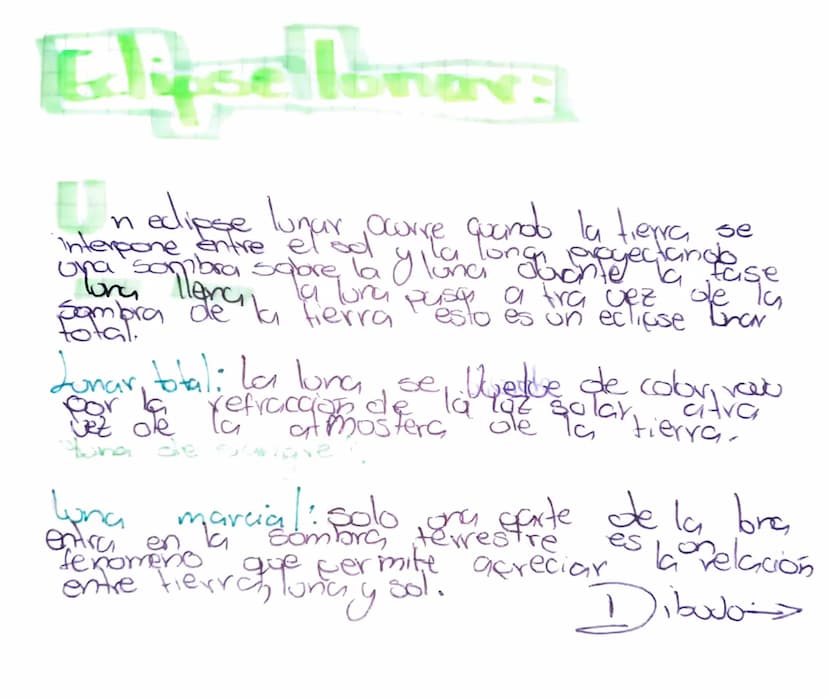 Eclipse lunar:
Un eclipse lunar ocurre quando la tierra se
interpone entre el sol y la luna proyectando
una sombra sobre la luna durante la fase
luna llena, la luna pasa a tra vez de la
sombra de la tierra esto es un eclipse lunar
total.
Lunar total: la luna se vuelve de color
por la refraccion de la luz solar atra
vez de la atmosfera de la tierra.
luna de sangre
Luna marcial: solo una parte de la luna
entra en la sombra terrestre es un
fenomeno que permite apreciar la relación
entre tierra, luna y sol.
Dibujo→